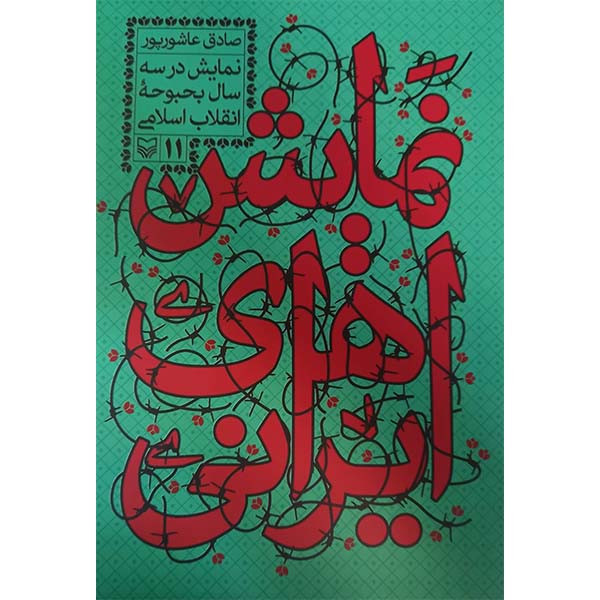 صادق عاشورپور
نمایش در سه
سال بحبوحهٔ
انقلاب اسلامی
۱۱
نمایش
های
ایرانی